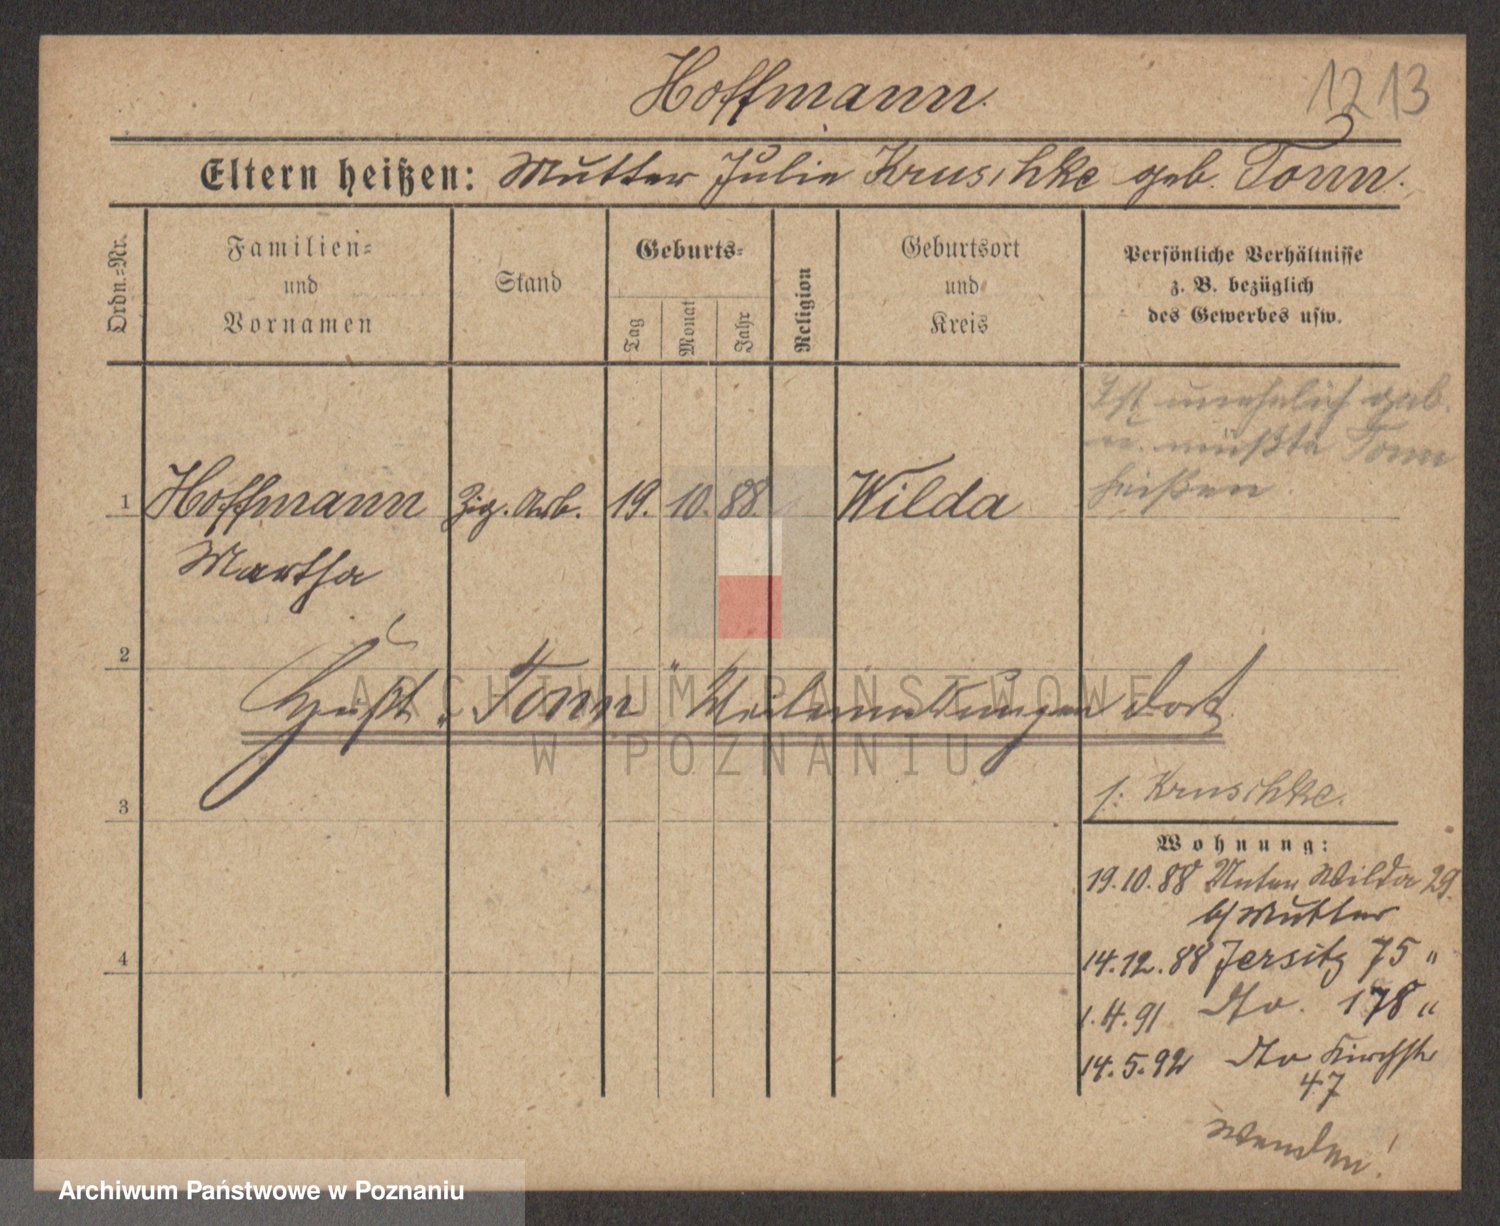 Hoffmann.
1213
Eltern heißen: Mutter Julie Kruschke geb. Tonn.
Ordn.-Nr.
Familien-
und
Vornamen
Stand
Geburts-
Tag
Monat
Jahr
Religion
Geburtsort
und
Kreis
Persönliche Verhältnisse
z. B. bezüglich
des Gewerbes usw.
Ist unehelich geb.
u. müßte Tonn
heißen.
1 Hoffmann Zig. Arb. 19. 10. 88. Wilda
Martha
2
heißt "Tonn" dort.
ARCHIWUM PAŃSTWOWE
W POZNANIU
3
f: Kruschke.
Wohnung:
19.10.88 Unter Wilda 29.
b/Mutter
14.12.88 Jersitz 75 "
4
1.4.91 dto. 178 "
14.5.92 dto Kirchstr
47
wenden!
Archiwum Państwowe w Poznaniu